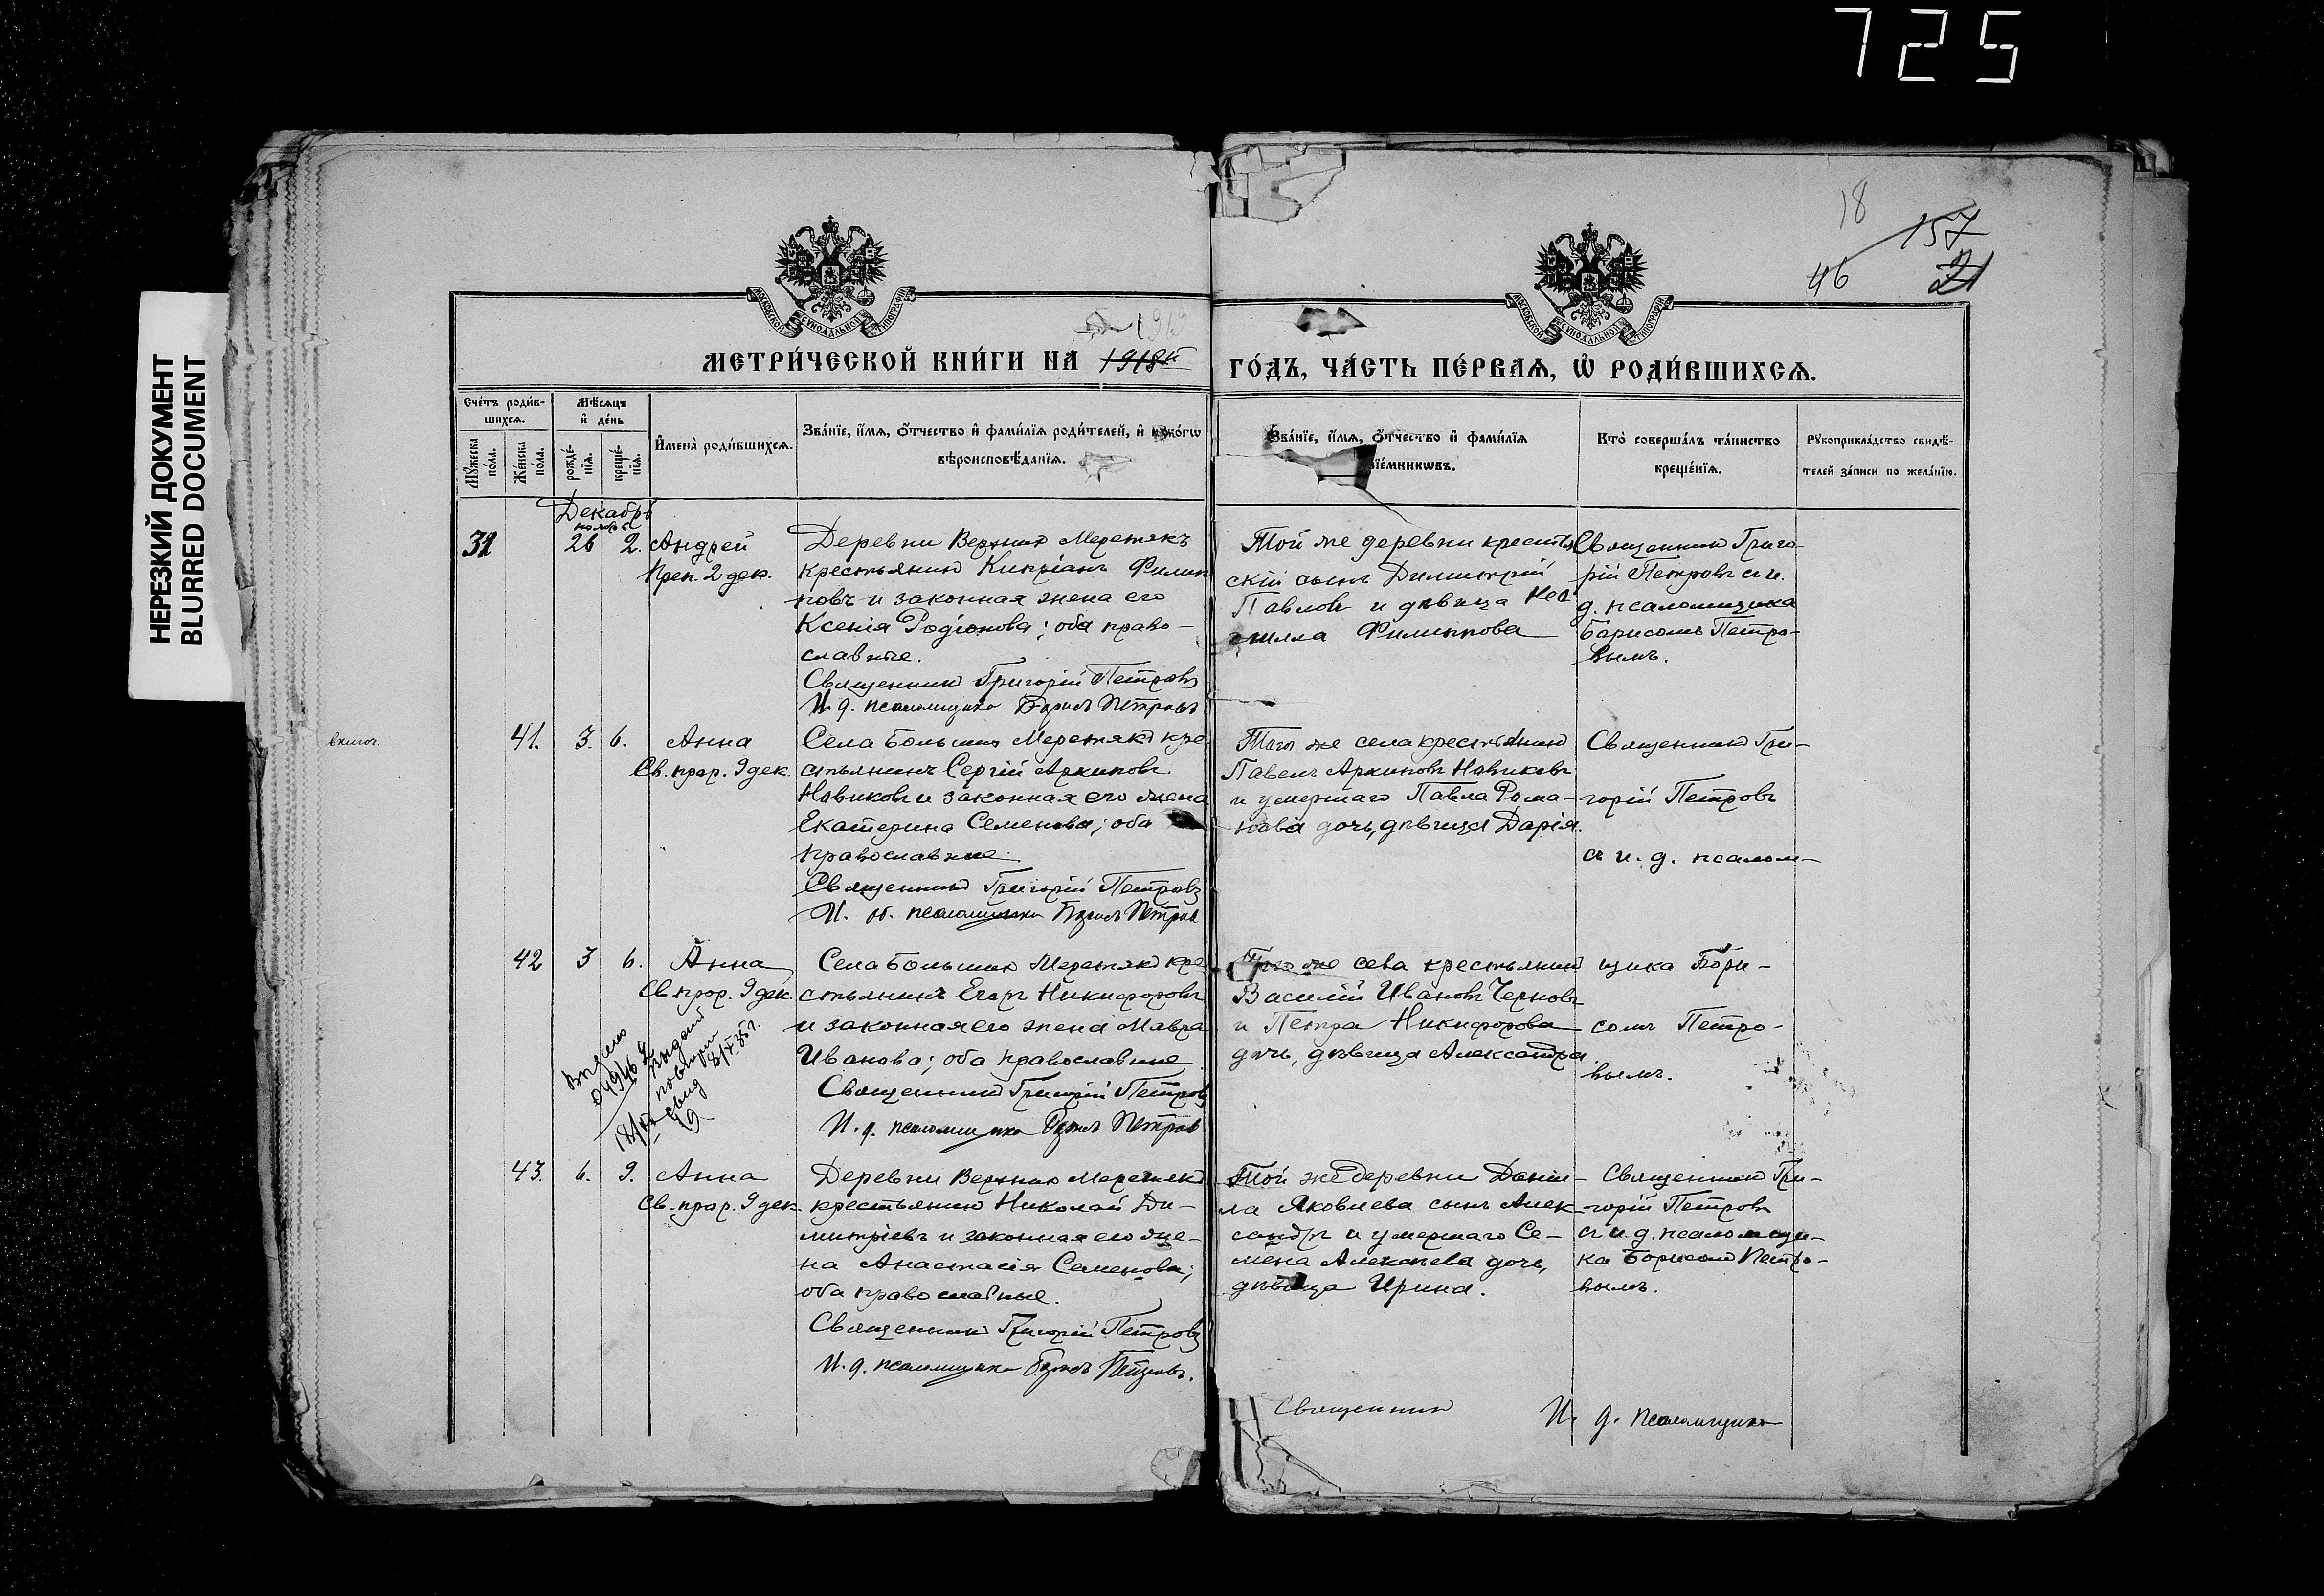 725
НЕРЕЗКИЙ ДОКУМЕНТ
BLURRED DOCUMENT
18
157
46
21
1919
МОСКОВСКОЙ СУНОДАЛЬНОЙ ТИПОГРАФІИ
МОСКОВСКОЙ СУНОДАЛЬНОЙ ТИПОГРАФІИ
МЕТРИ́ЧЕСКОЙ КНИ́ГИ НА 1918й ГО́ДЪ, ЧА́СТЬ ПЕ́РВАЯ, Ѡ҆ РОДИ́ВШИХСЯ.
Сче́тъ роди́в-
шихся.
Мѣ́сяцъ
и҆ де́нь
Мꙋ́жеска
по́ла.
Же́нска
по́ла.
рожде́-
нїя.
креще́-
нїя.
И҆мена̀ роди́вшихся.
Зва́нїе, и҆́мя, ѻ҆́тчество и҆ фами́лїя роди́телей, и҆ како́гѡ
вѣроисповѣ́данїя.
Зва́нїе, и҆́мя, ѻ҆́тчество и҆ фами́лїя
їе́мникѡвъ.
Кто̀ соверша́лъ та́инство
креще́нїя.
Рꙋкоприкла́дство свидѣ́-
телей за́писи по жела́нїю.
Декабрь
ноябрь
31 26 2. Андрей
Преп. 2 дек.
Деревни Верхних Меретякъ
крестьянинъ Кипріанъ Филип
повъ и законная жена его
Ксенія Родіонова; оба право-
славные.
Священникъ Григорій Петровъ
И. д. псаломщика Борисъ Петровъ
Той же деревни крестьян
скій сынъ Димитрій
Павловъ и дѣвица
Филиппова
Священникъ Григо-
рій Петровъ съ и.
д. псаломщика
Борисомъ Петро-
вымъ.
включ.
41. 3. 6. Анна
Св. прор. 9 дек.
Села Большихъ Меретякъ кре-
стьянинъ Сергій Архиповъ
Новиковъ и законная его жена
Екатерина Семенова; оба
православные.
Священникъ Григорій Петровъ
И. об. псаломщика Борисъ Петров
Того же села крестьянинъ
Павелъ Архиповъ Новиковъ
и умершаго Павла Рома-
нова дочь, дѣвица Дарія.
Священникъ Гри-
горій Петровъ
съ и. д. псалом-
42 3 6. Анна
Св. прор. 9 дек.
Села Большихъ Меретякъ кре-
стьянинъ Егоръ Никифоровъ
и законная его жена Мавра
Иванова; оба православные
Священникъ Григорій Петровъ
И. д. псаломщика Борисъ Петров
Того же села крестьянинъ
Василій Ивановъ Черновъ
и Петра Никифорова
дочь, дѣвица Александра.
щика Бори-
сомъ Петро-
вымъ.
43. 6. 9. Анна
Св. прор. 9 дек.
Деревни Верхнихъ Меретякъ
крестьянинъ Николай Ди-
митріевъ и законная его же-
на Анастасія Семенова;
оба православные.
Священникъ Григорій Петровъ
И. д. псаломщика Борисъ Петровъ.
Той же деревни Дании-
ла Яковлева сынъ Алек-
сандръ и умершаго Се-
мена Алексѣева дочь,
дѣвица Ирина.
Священникъ Гри-
горій Петровъ
съ и. д. псаломщи-
ка Борисомъ Петро-
вымъ.
Священникъ
И. д. псаломщика